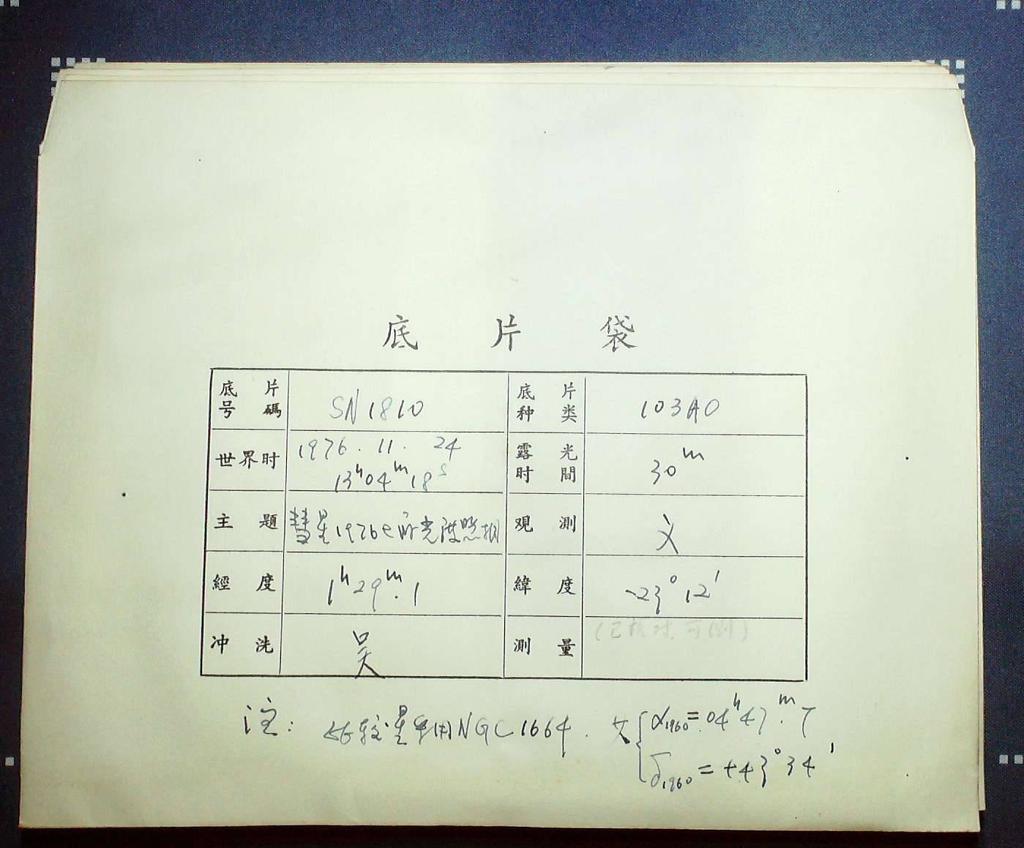 底片袋
底片号碼 SN1810 底片种类 103AO
世界时 1976.11.24 13h04m18s 露光时間 30m
主題 彗星1976e的光度照相 观測
經度 1h29m.1 緯度 -23°12′
冲洗 吴 測量
注: 比较星用NGC1664. α1960=04h47m.7
δ1960=+43°34′